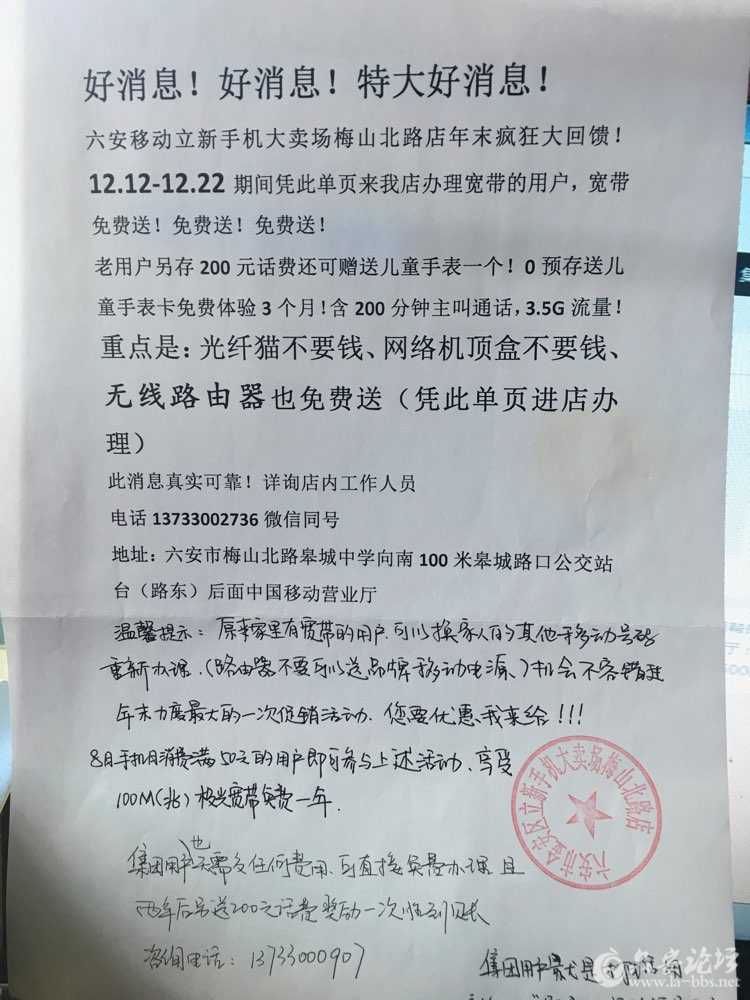 好消息！好消息！特大好消息！
六安移动立新手机大卖场梅山北路店年末疯狂大回馈！
12.12-12.22 期间凭此单页来我店办理宽带的用户，宽带
免费送！免费送！免费送！
老用户另存 200 元话费还可赠送儿童手表一个！0 预存送儿
童手表卡免费体验 3 个月！含 200 分钟主叫通话，3.5G 流量！
重点是：光纤猫不要钱、网络机顶盒不要钱、
无线路由器也免费送（凭此单页进店办
理）
此消息真实可靠！详询店内工作人员
电话 13733002736 微信同号
地址：六安市梅山北路皋城中学向南 100 米皋城路口公交站
台（路东）后面中国移动营业厅
温馨提示：原来家里有宽带的用户，可以换家人的其他移动号码
重新办理.（路由器不要可以送品牌移动电源、）机会不容错过
年末力度最大的一次促销活动. 您要优惠我来给!!!
手机月消费满50元的用户即可参与上述活动、享受
100M(兆) 极光宽带免费一年.
集团用户也无需交任何费用、可直接免费办理 且
两年后另送200元话费奖励一次性到账
咨询电话：13733000907
集团用户
六安市金安区立新手机大卖场梅山北路店
六安论坛
www.la-bbs.net